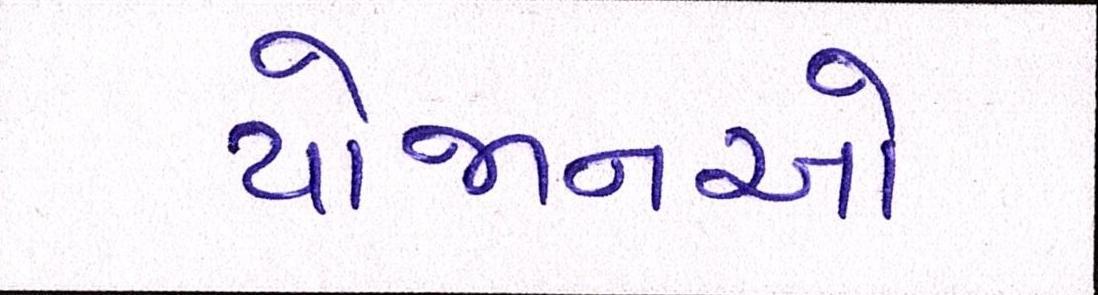 યોજાનઓ